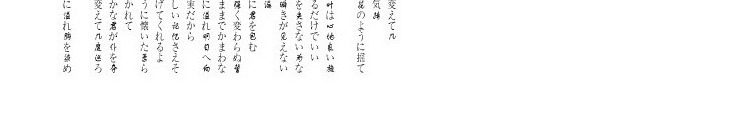 変えて几
気
花のように揺て
叶は心地良い旋
るだけでいい
を失さない形な
瞬きが見えない
温
に君を包む
儚く変わらぬ誓
ままでかまわな
に溢れ明日へ向
実だから
しい記憶さえそ
げてくれるよ
うに懐いた柔ら
かれて
かな君が仆を奪
変えて几度巡ろ
に溢れ胸を染め